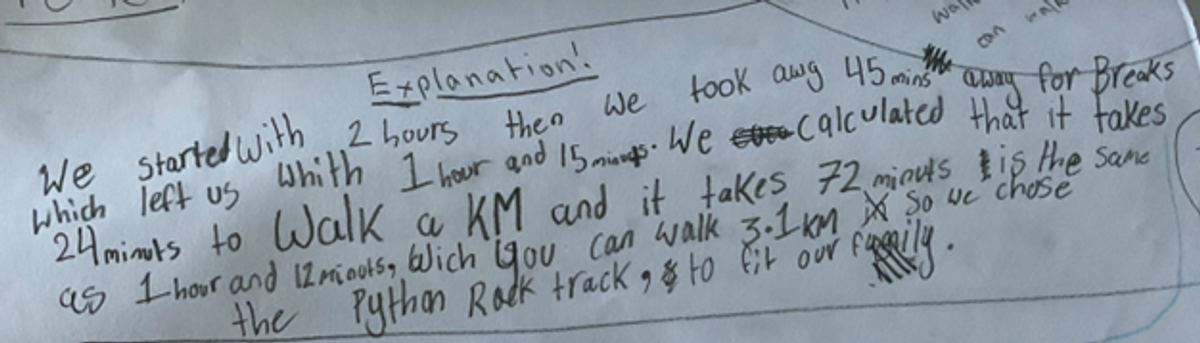 walk
can walk
Explanation!
We started with 2 hours then we took awg 45 mins away for Breaks
which left us whith 1 hour and 15 minuts. We calculated that it takes
24 minuts to walk a KM and it takes 72 minuts is the same
as 1 hour and 12 minuts, Wich you can walk 3.1 KM So we chose
the Python Rock track, to fit our family.